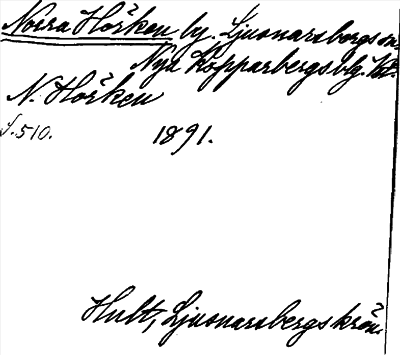 Norra Hörken by. Ljusnarsbergs sn,
Nya Kopparbergs blg. Vstm.
N. Hörken
S. 510. 1891.
Hult, Ljusnarsbergskrön.